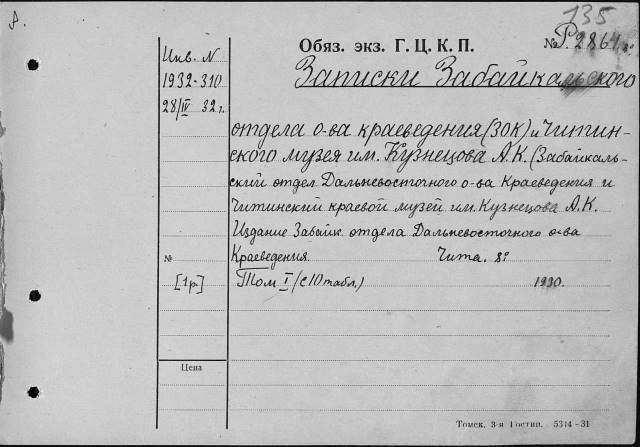 р.
135
Обяз. экз. Г. Ц. К. П. № Р 2864
Инв. N
1932-310
28/IV 32 г.
Записки Забайкальского
отдела о-ва краеведения (ЗОК) и Читин-
ского музея им. Кузнецова А.К. (Забайкаль-
ский отдел Дальневосточного о-ва Краеведения и
Читинский краевой музей им. Кузнецова А.К.
Издание Забайк. отдела Дальневосточного о-ва
Краеведения. Чита. 8°
№
[1р] Том I (с 10 табл.) 1930.
Цена
Томск. 3-я Гостип. 5314-31